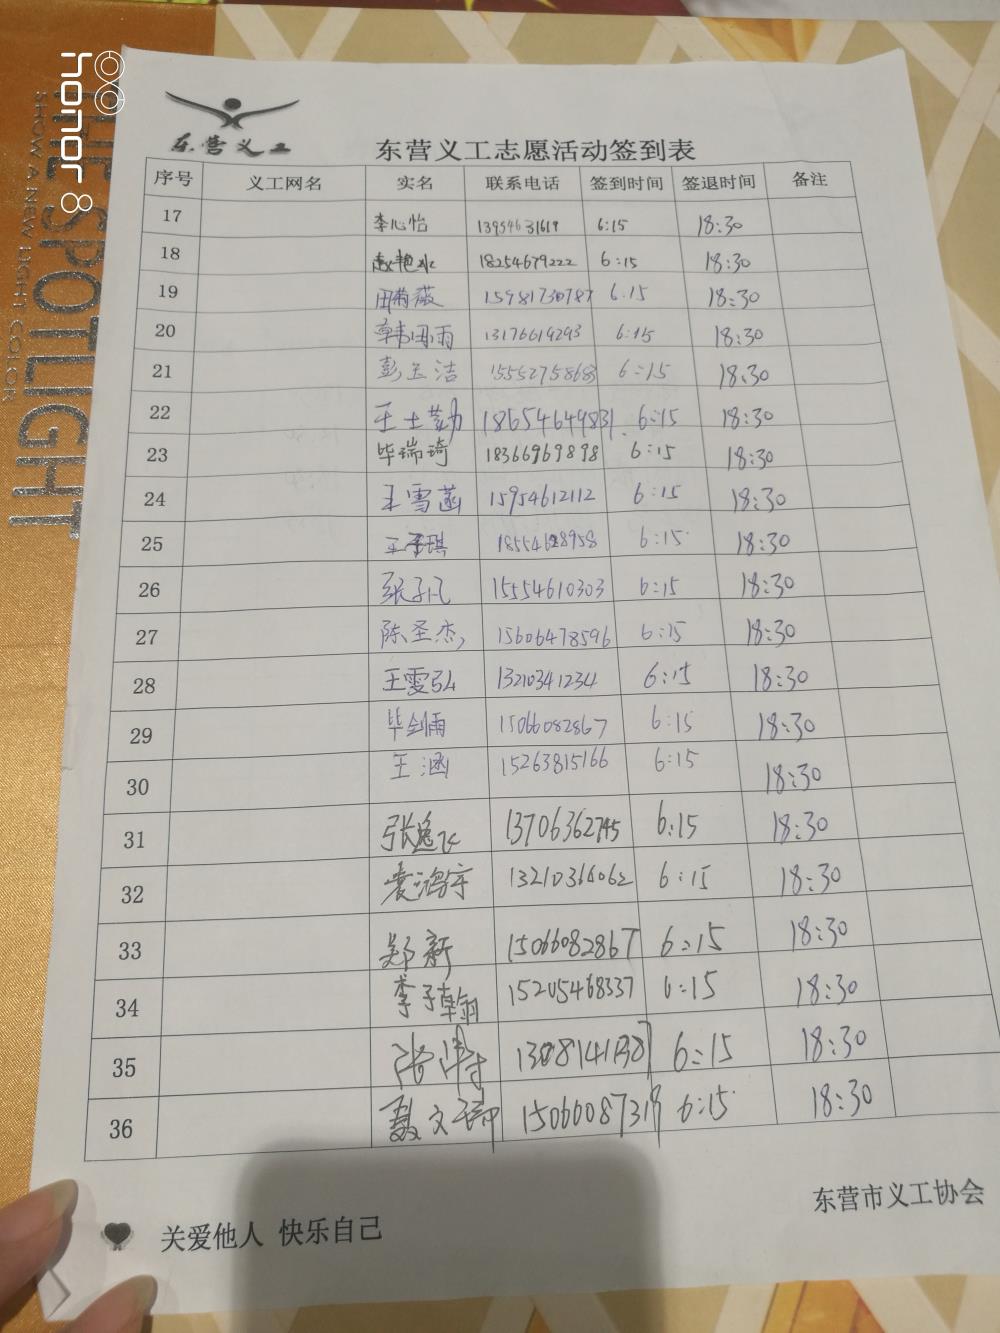 honor 8
THE SPOTLIGHT
SHOW A NEW LIGHT COLOR
东营义工
东营义工志愿活动签到表
序号 义工网名 实名 联系电话 签到时间 签退时间 备注
17 李心怡 13954631619 6:15 18:30
18 赵艳冰 18254679222 6:15 18:30
19 田蕴薇 15981730787 6:15 18:30
20 韩雨 13176619293 6:15 18:30
21 彭玉洁 15552758683 6:15 18:30
22 王士勤 18654649831 6:15 18:30
23 毕瑞琦 18366969898 6:15 18:30
24 王雪菡 15954612112 6:15 18:30
25 王子琪 18554628958 6:15 18:30
26 张子凡 15554610303 6:15 18:30
27 陈圣杰 15606478596 6:15 18:30
28 王雯弘 13210341234 6:15 18:30
29 毕剑雨 15066082867 6:15 18:30
30 王涵 15263815166 6:15 18:30
31 张逸飞 13706362745 6:15 18:30
32 袁鸿宇 13210364062 6:15 18:30
33 郑新 15066082867 6:15 18:30
34 李子翰 15205468337 6:15 18:30
35 张博 6:15 18:30
36 聂文 15066087319 6:15 18:30
东营市义工协会
关爱他人 快乐自己